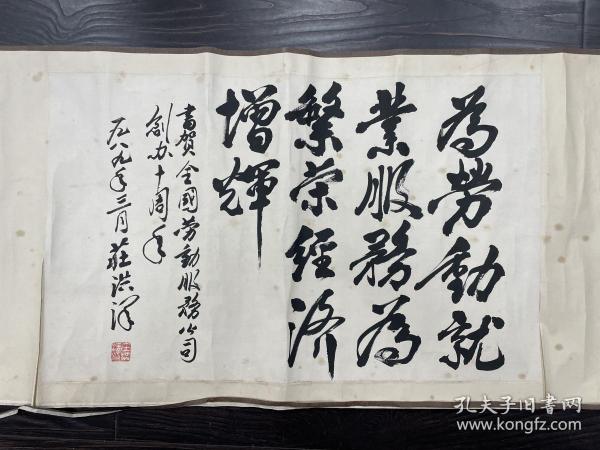 為勞動就
業服務為
繁荣經济
增輝
書賀全國劳動服務公司
創办十周年
一九八九年三月 莊洪澤
孔夫子旧書网
www.kongfz.com